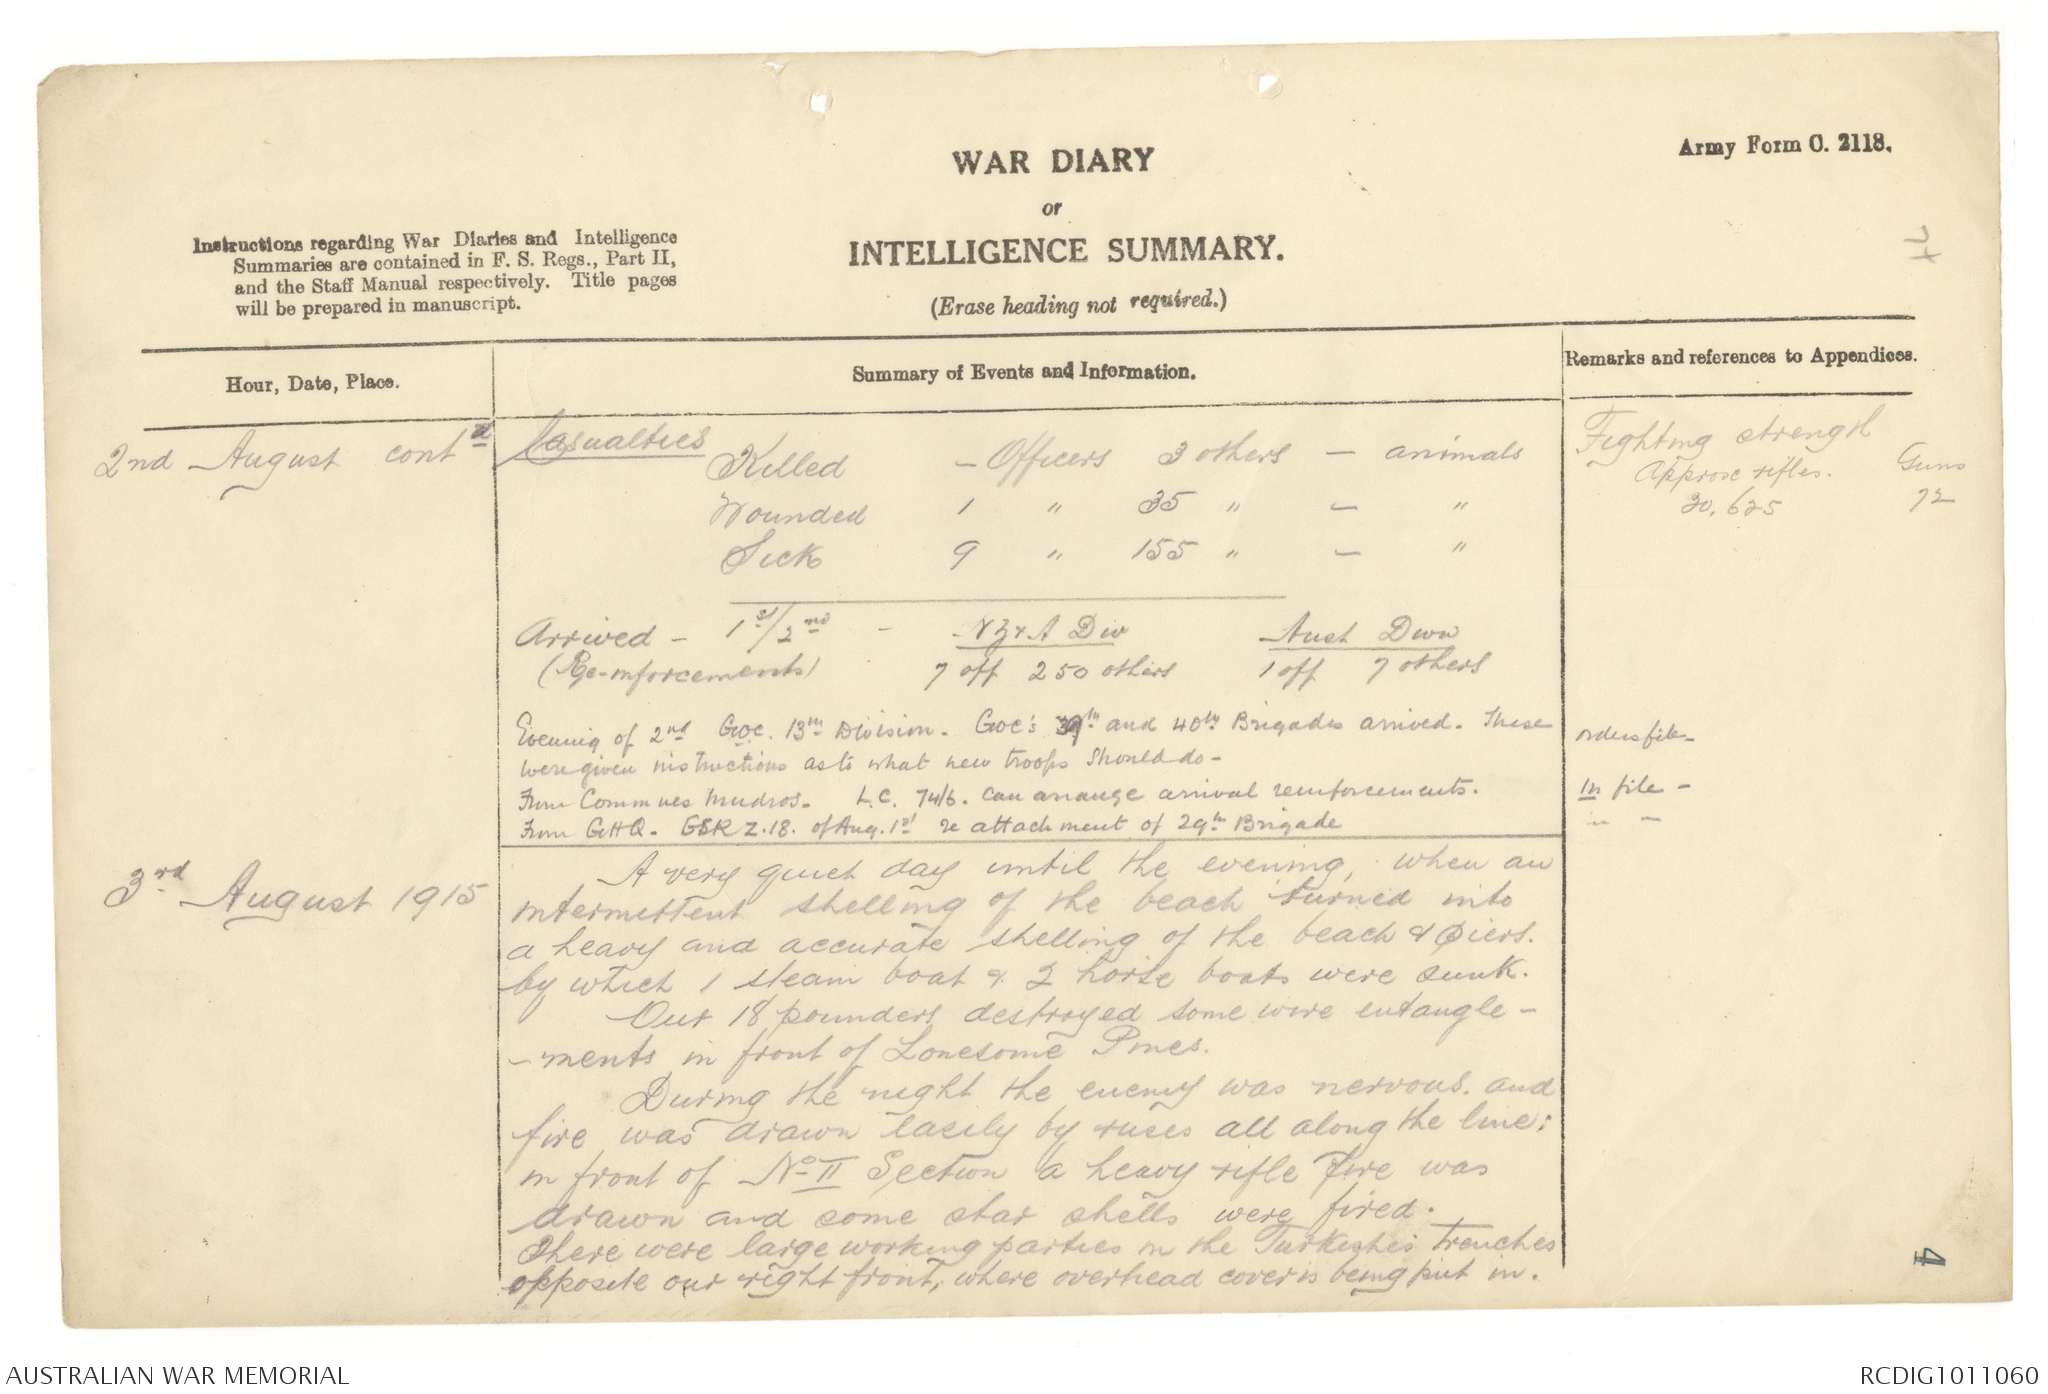 Army Form C. 2118.
WAR DIARY
or
INTELLIGENCE SUMMARY.
(Erase heading not required.)
Instructions regarding War Diaries and Intelligence
Summaries are contained in F. S. Regs., Part II,
and the Staff Manual respectively. Title pages
will be prepared in manuscript.
Hour, Date, Place.
Summary of Events and Information.
Remarks and references to Appendices.
2nd August contd
Casualties
Killed – Officers 3 others – animals
Wounded 1 " 35 " – "
Sick 9 " 155 " – "
Fighting strength
Approx rifles. Guns
20,625 72
Arrived – 1st/2nd – NZ & A Div Aust Divn
(Re-inforcements) 7 off 250 others 1 off 7 others
Evening of 2nd GOC. 13th Division. GOC's 39th and 40th Brigades arrived. These
were given instructions as to what new troops should do –
orders file –
From Commues Mudros. L.C. 74/6. can arrange arrival reinforcements.
In file –
From GHQ. GSR Z.18. of Aug. 1st re attachment of 29th Brigade
" –
3rd August 1915
A very quiet day until the evening, when an
intermittent shelling of the beach turned into
a heavy and accurate shelling of the beach & piers.
by which 1 steam boat & 2 horse boats were sunk.
Our 18 pounders destroyed some wire entangle-
-ments in front of Lonesome Pines.
During the night the enemy was nervous. and
fire was drawn easily by ruses all along the line;
in front of No II Section a heavy rifle fire was
drawn and some star shells were fired.
There were large working parties in the Turkish trenches
opposite our right front, where overhead cover is being put in.
4
4
AUSTRALIAN WAR MEMORIAL
RCDIG1011060